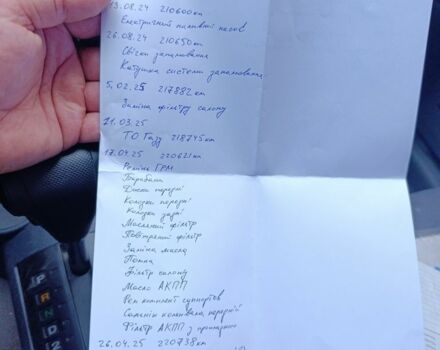 13.08.24 210600км
Електричний паливний насос
26.08.24 210650км
Свічки запалювання
Катушка системи запалювання
5.02.25 217882км
Заміна фільтру салону
21.03.25
ТО Газу 218745км
17.04.25 220621км
Ремінь ГРМ
Барабани
Диски передні
Колодки передні
Колодки задні
Масляний фільтр
Повітряний фільтр
Заміна масла
Помпа
Фільтр салону
Масло АКПП
Рем комплект супортов
Сальнік коленвала передній
Фільтр АКПП з прокладкою
26.04.25 220738км
P
R
N
D
2